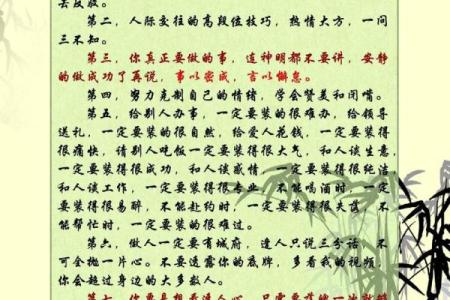 去反驳。
第二，人际交往的高段位技巧，热情大方，一问
三不知。
第三，你真正要做的事，连神明都不要讲，安静
的做成功了再说，事以密成，言以懈息。
第四，努力克制自己的情绪，学会赞美和闭嘴。
第五，给别人办事，一定要装的很难办，给领导
送礼，一定要装的很自然，给爱人花钱，一定要装得
很痛快，请别人吃饭一定要装得很大气，和人谈生意，
一定要装得很成功，和人谈感情，一定要装得很纯洁
和人谈工作，一定要装得很专业，不能喝酒时，一定
要装得很易醉，不能赴约时，一定要装得很失落，不
能帮忙时，一定要装的很难过。
第六，做人一定要有城府，逢人只说三分话，不
可全抛一片心。不要透露你的底牌，多看我的视频，
你会超过身边的大多数人。